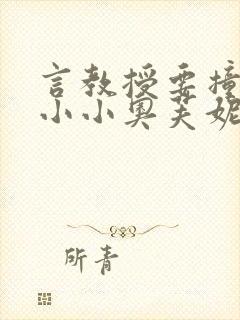 言教授要撞
小小奥芙妮
所青